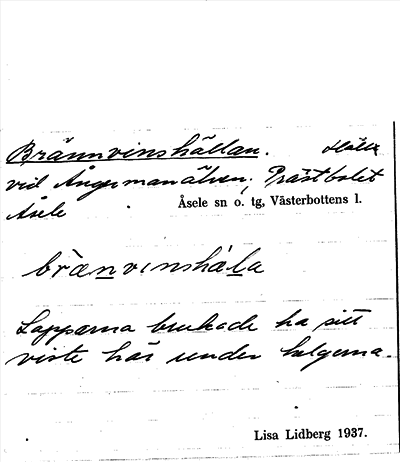 Brännvinshällan. Häll
vid Ångermanälven, Prästbolet
Åsele
Åsele sn o. tg, Västerbottens l.
bræ̀nvinshäl̀a
Lapparna brukade ha sitt
viste här under helgerna.
Lisa Lidberg 1937.